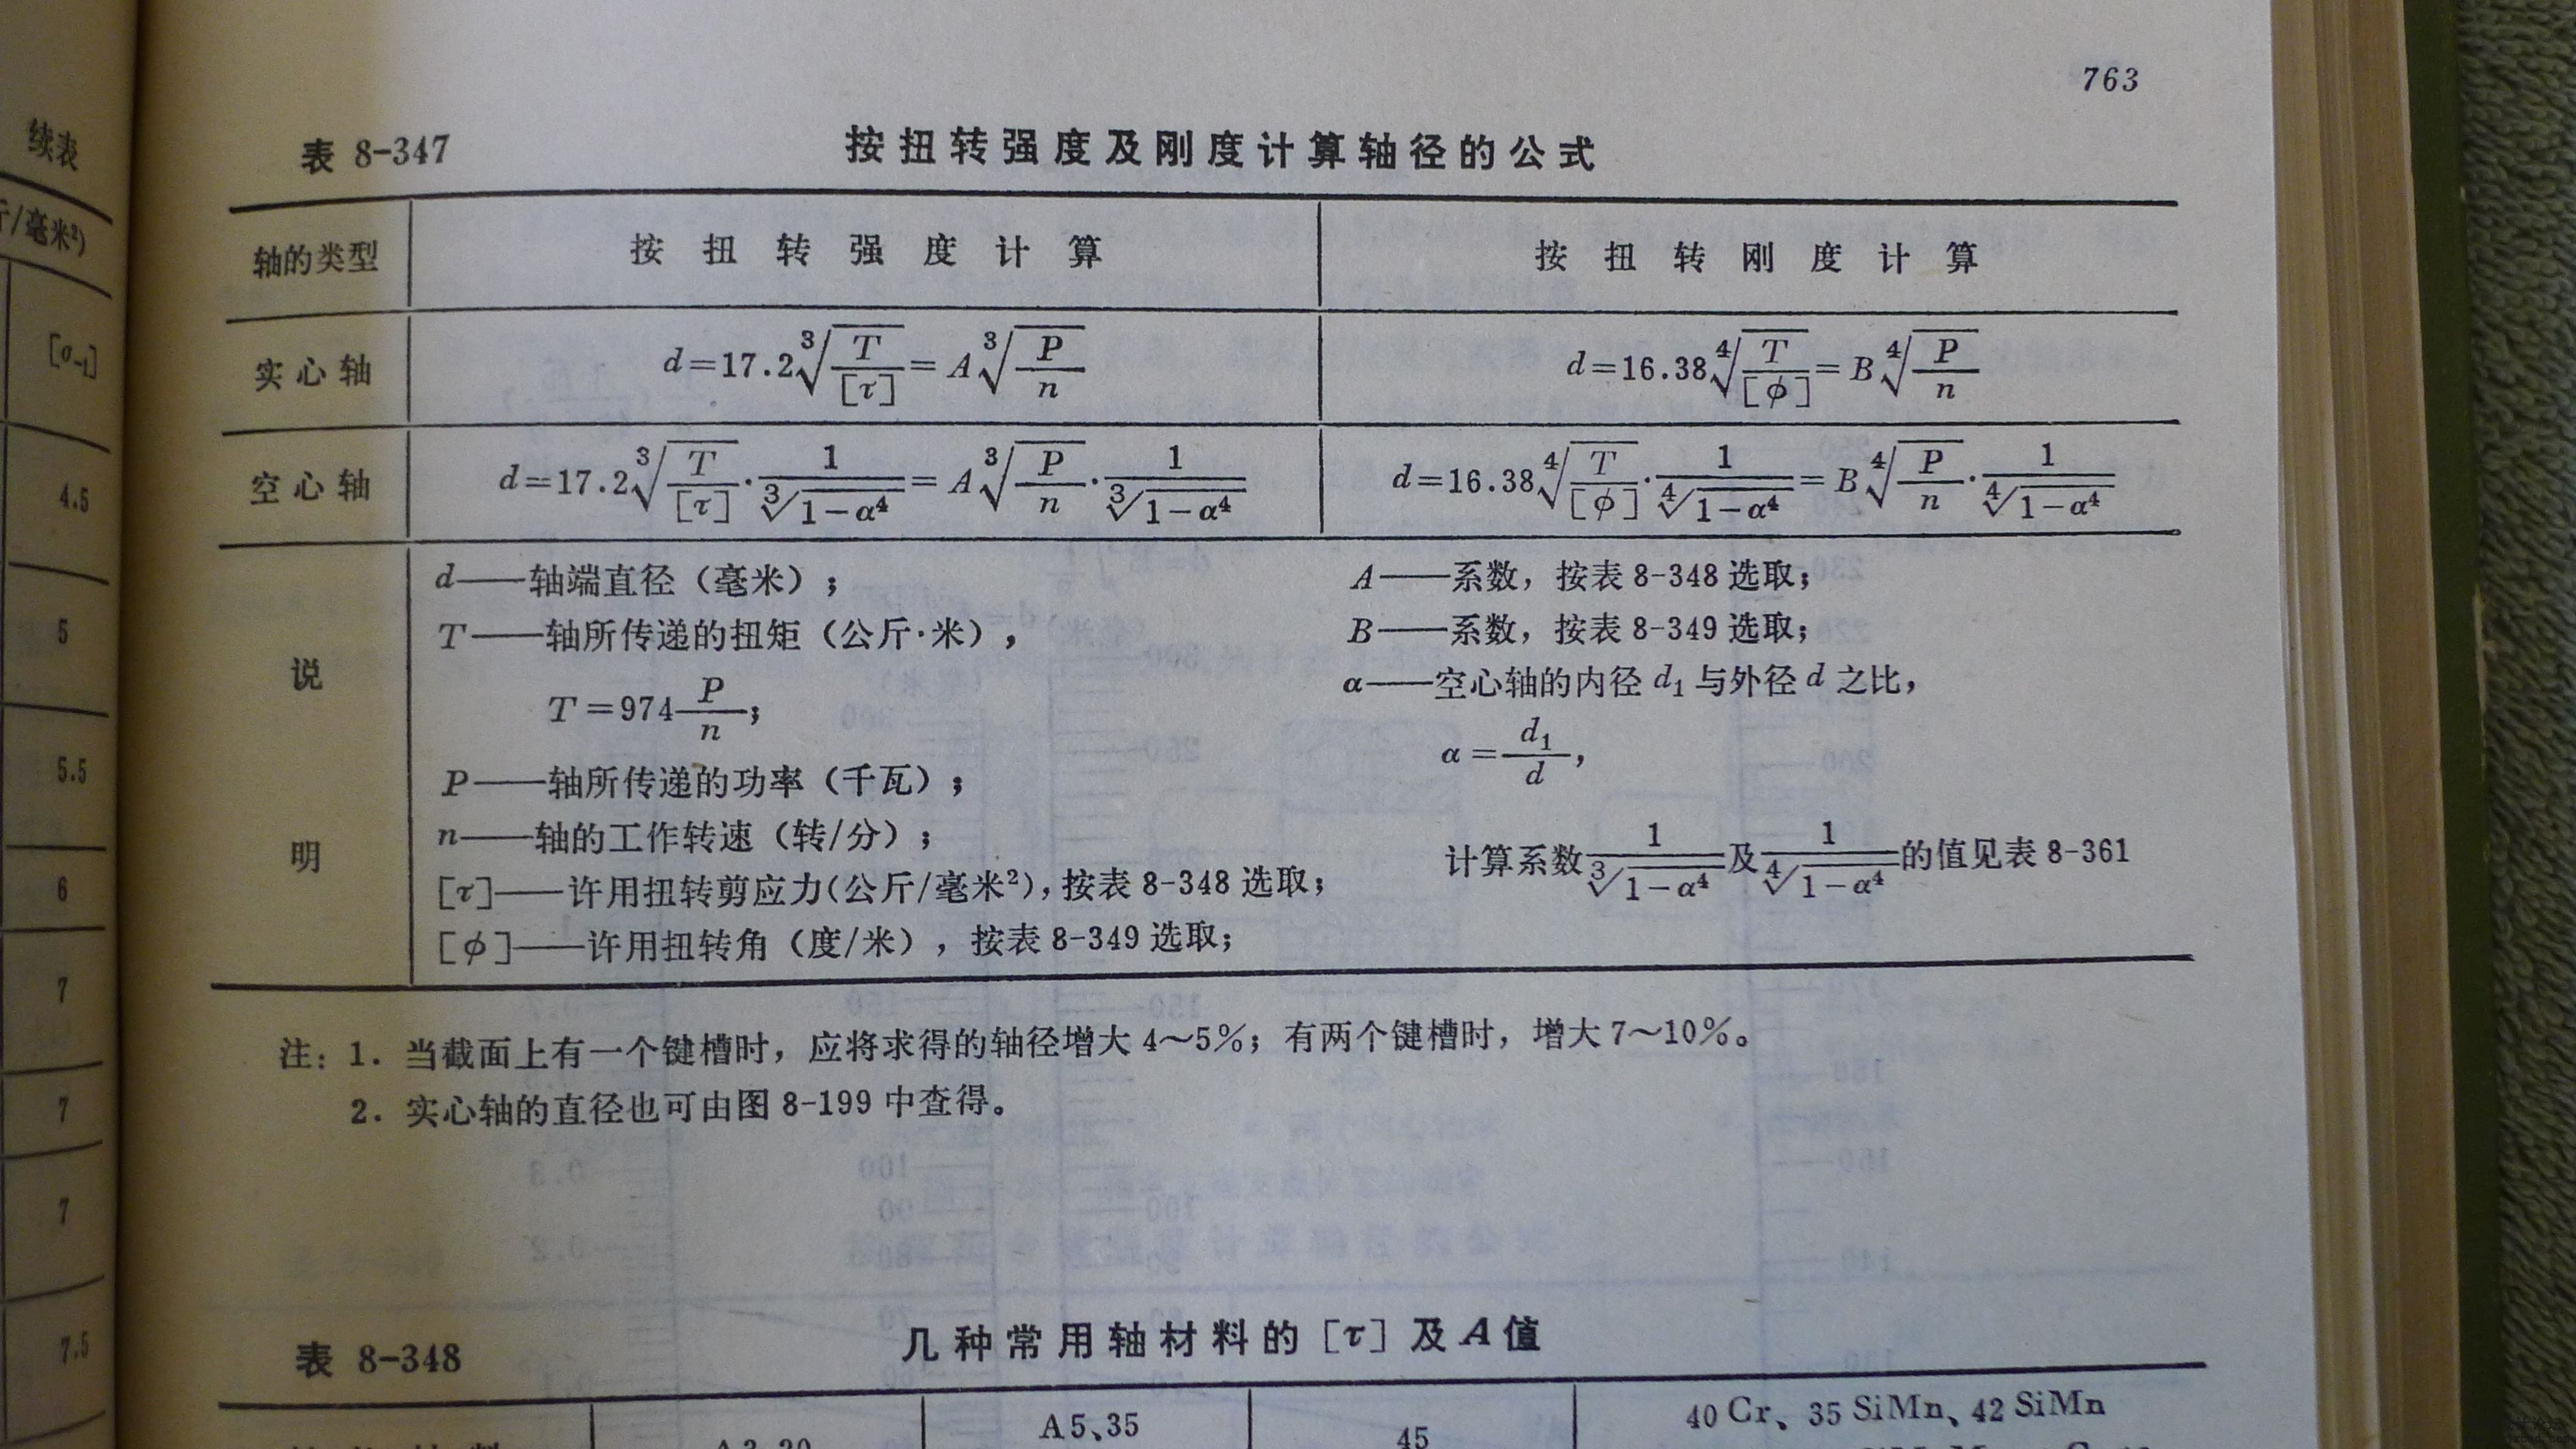 763
续表
斤/毫米²)
[σ₋₁]
4.5
5
5.5
6
7
7
7
7.5
表 8-347 按扭转强度及刚度计算轴径的公式
轴的类型 按扭转强度计算 按扭转刚度计算
实心轴 d=17.2∛(T/[τ])=A∛(P/n) d=16.38∜(T/[φ])=B∜(P/n)
空心轴 d=17.2∛(T/[τ])·1/∛(1-α⁴)=A∛(P/n)·1/∛(1-α⁴) d=16.38∜(T/[φ])·1/∜(1-α⁴)=B∜(P/n)·1/∜(1-α⁴)
说明
d——轴端直径（毫米）；
T——轴所传递的扭矩（公斤·米），
T=974 P/n；
P——轴所传递的功率（千瓦）；
n——轴的工作转速（转/分）；
[τ]——许用扭转剪应力(公斤/毫米²)，按表 8-348 选取；
[φ]——许用扭转角（度/米），按表 8-349 选取；
A——系数，按表 8-348 选取；
B——系数，按表 8-349 选取；
α——空心轴的内径 d₁ 与外径 d 之比，
α=d₁/d，
计算系数 1/∛(1-α⁴) 及 1/∜(1-α⁴) 的值见表 8-361
注：1．当截面上有一个键槽时，应将求得的轴径增大 4～5%；有两个键槽时，增大 7～10%。
2．实心轴的直径也可由图 8-199 中查得。
表 8-348 几种常用轴材料的 [τ] 及 A 值
A5、35 45 40 Cr、35 SiMn、42 SiMn